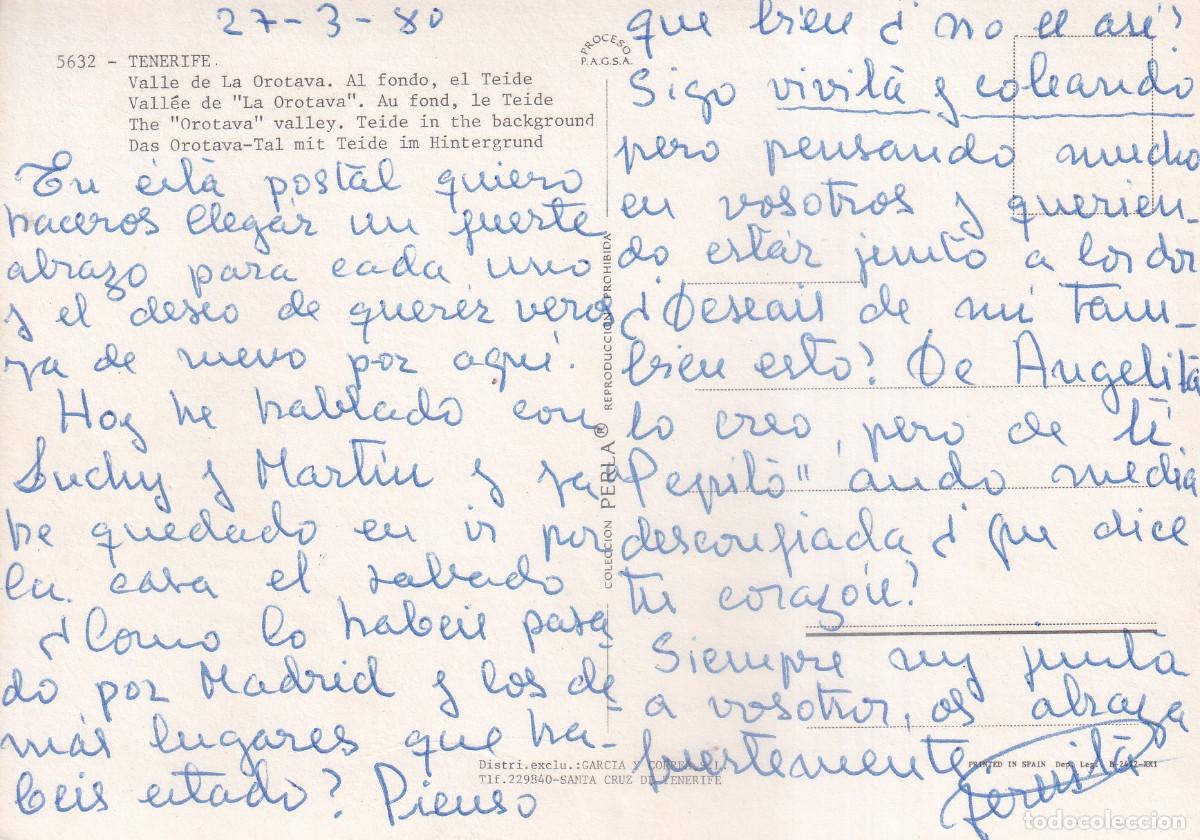 27-3-80
5632 - TENERIFE.
Valle de La Orotava. Al fondo, el Teide
Vallée de "La Orotava". Au fond, le Teide
The "Orotava" valley. Teide in the background
Das Orotava-Tal mit Teide im Hintergrund
En ésta postal quiero
haceros llegar un fuerte
abrazo para cada uno
y el deseo de querer veros
ya de nuevo por aquí.
Hoy he hablado con
Luchy y Martín y ya
he quedado en ir por
la casa el sabado
¿Como lo habeis pasa
do por Madrid y los de
más lugares que ha-
beis estado? Pienso
PROCESO
P.A.G.S.A.
COLECCION PERLA® REPRODUCCION PROHIBIDA
que bien ¿no es así?
Sigo vivita y coleando
pero pensando mucho
en vosotros y querien-
do estar junto a los dos
¿Deseais de mi tam-
bien esto? De Angelita
lo creo, pero de ti,
Pepito" ando media
desconfiada ¿que dice
tu corazón?
Siempre muy junta
a vosotros, os abraza
fuertemente
Distri.exclu.:GARCIA Y CORREA S.L.
Tlf.229840-SANTA CRUZ DE TENERIFE
PRINTED IN SPAIN Dep. Leg. B-2412-XXI
todocoleccion